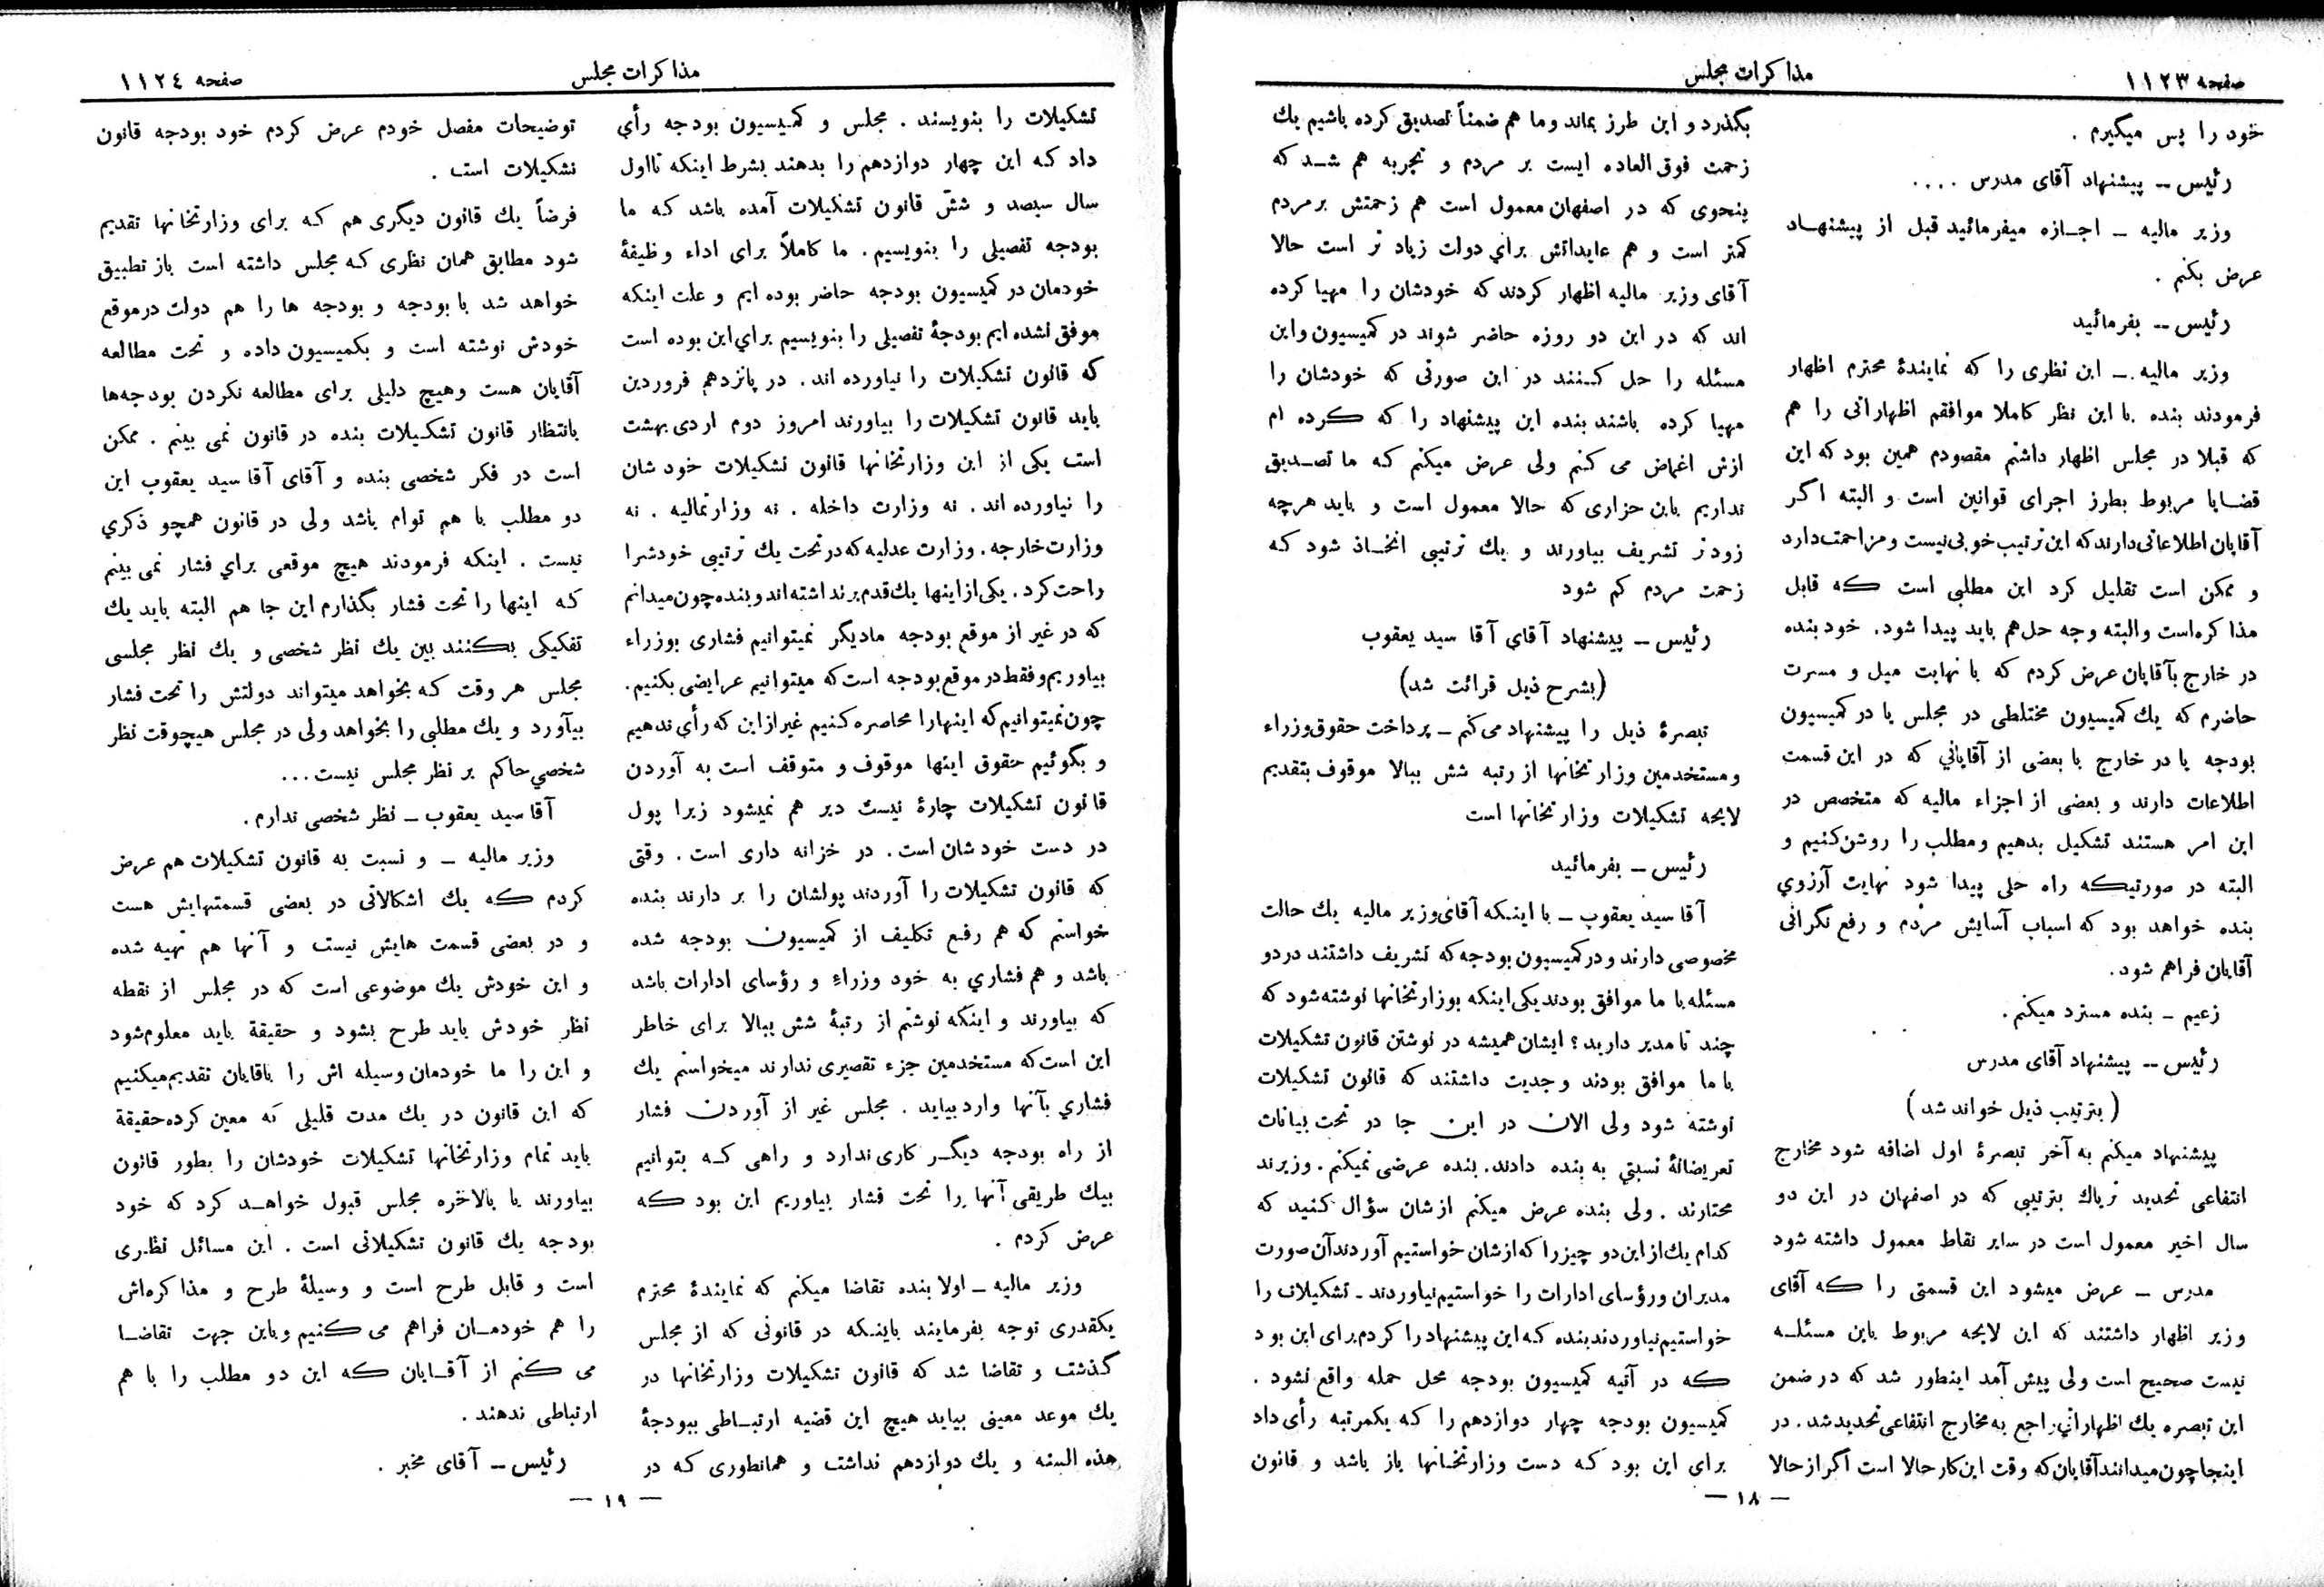 صفحه ۱۱۲۳
مذاکرات مجلس
خود را پس میگیرم .
رئیس – پیشنهاد آقای مدرس ....
وزیر مالیه – اجازه میفرمائید قبل از پیشنهاد
عرض بکنم .
رئیس – بفرمائید
وزیر مالیه – این نظری را که نمایندهٔ محترم اظهار
فرمودند بنده با این نظر کاملا موافقم اظهاراتی را هم
که قبلا در مجلس اظهار داشتم مقصودم همین بود که این
قضایا مربوط بطرز اجرای قوانین است و البته اگر
آقایان اطلاعاتی دارند که این ترتیب خوبی نیست و مزاحمت دارد
و ممکن است تقلیل کرد این مطلبی است که قابل
مذاکره است و البته وجه حل هم باید پیدا شود. خود بنده
در خارج بآقایان عرض کردم که با نهایت میل و مسرت
حاضرم که یك کمیسیون مختلطی در مجلس یا در کمیسیون
بودجه یا در خارج با بعضی از آقایانی که در این قسمت
اطلاعات دارند و بعضی از اجزاء مالیه که متخصص در
این امر هستند تشکیل بدهیم ومطلب را روشن کنیم و
البته در صورتیکه راه حلی پیدا شود نهایت آرزوي
بنده خواهد بود که اسباب آسایش مردم و رفع نگرانی
آقایان فراهم شود.
زعیم – بنده مسترد میکنم .
رئیس – پیشنهاد آقای مدرس
( بترتیب ذیل خوانده شد )
پیشنهاد میکنم به آخر تبصرهٔ اول اضافه شود مخارج
انتفاعی تحدید تریاك بترتیبی که در اصفهان در این دو
سال اخیر معمول است در سایر نقاط معمول داشته شود
مدرس – عرض میشود این قسمتی را که آقای
وزیر اظهار داشتند که این لایحه مربوط باین مسئله
نیست صحیح است ولی پیش آمد اینطور شد که در ضمن
این تبصره یك اظهاراتي راجع به مخارج انتفاعی تحدید شد . در
اینجا چون میدانند آقایان که وقت این کار حالا است اگر از حالا
بگذرد و این طرز بماند وما هم ضمناً تصدیق کرده باشیم یك
زحمت فوق العاده ایست بر مردم و تجربه هم شد که
بنحوی که در اصفهان معمول است هم زحمتش بر مردم
کمتر است و هم عایداتش براي دولت زیاد تر است حالا
آقای وزیر مالیه اظهار کردند که خودشان را مهیا کرده
اند که در این دو روزه حاضر شوند در کمیسیون واین
مسئله را حل کنند در این صورتی که خودشان را
مهیا کرده باشند بنده این پیشنهاد را که کرده ام
ازش اغماض می کنم ولی عرض میکنم که ما تصدیق
نداریم باین حزاری که حالا معمول است و باید هرچه
زودتر تشریف بیاورند و یك ترتیبی اتخاذ شود که
زحمت مردم کم شود
رئیس – پیشنهاد آقای آقا سید یعقوب
(بشرح ذیل قرائت شد)
تبصرهٔ ذیل را پیشنهاد می کنم – پرداخت حقوق وزراء
و مستخدمین وزارتخانها از رتبه شش ببالا موقوف بتقدیم
لایحه تشکیلات وزارتخانها است
رئیس – بفرمائید
آقا سید یعقوب – با اینکه آقای وزیر مالیه یك حالت
مخصوصی دارند و در کمیسیون بودجه که تشریف داشتند در دو
مسئله با ما موافق بودند یکی اینکه بوزارتخانها نوشته شود که
چند تا مدیر دارید ؟ ایشان همیشه در نوشتن قانون تشکیلات
با ما موافق بودند و جدیت داشتند که قانون تشکیلات
نوشته شود ولی الان در این جا در تحت بیانات
تعریضانهٔ نسبتي به بنده دادند. بنده عرضی نمیکنم . وزیرند
مختارند . ولی بنده عرض میکنم ازشان سؤال کنید که
کدام یك از این دو چیز را که ازشان خواستیم آوردند آن صورت
مدیران ورؤسای ادارات را خواستیم نیاوردند - تشکیلات را
خواستیم نیاوردند بنده که این پیشنهاد را کردم برای این بود
که در آتیه کمیسیون بودجه محل حمله واقع نشود .
کمیسیون بودجه چهار دوازدهم را که یکمرتبه رأی داد
برای این بود که دست وزارتخانها باز باشد و قانون
— ۱۸ —
مذاکرات مجلس
صفحه ۱۱۲٤
تشکیلات را بنویسند . مجلس و کمیسیون بودجه رأي
داد که این چهار دوازدهم را بدهند بشرط اینکه تا اول
سال سیصد و شش قانون تشکیلات آمده باشد که ما
بودجه تفصیلی را بنویسیم . ما کاملاً برای اداء وظیفهٔ
خودمان در کمیسیون بودجه حاضر بوده ایم و علت اینکه
موفق نشده ایم بودجهٔ تفصیلی را بنویسیم براي این بوده است
که قانون تشکیلات را نیاورده اند . در پانزدهم فروردین
باید قانون تشکیلات را بیاورند امروز دوم اردی بهشت
است یکی از این وزارتخانها قانون تشکیلات خودشان
را نیاورده اند . نه وزارت داخله . نه وزارتمالیه . نه
وزارت خارجه . وزارت عدلیه که در تحت یك ترتیبی خودشرا
راحت کرد . یکی از اینها یك قدم برنداشته اند و بنده چون میدانم
که در غیر از موقع بودجه ما دیگر نمیتوانیم فشاری بوزراء
بیاوریم و فقط در موقع بودجه است که میتوانیم عرایضی بکنیم .
چون نمیتوانیم که اینها را محاصره کنیم غیر از این که رأي ندهیم
و بگوئیم حقوق اینها موقوف و متوقف است به آوردن
قانون تشکیلات چارهٔ نیست دیر هم نمیشود زیرا پول
در دست خودشان است . در خزانه داری است . وقتی
که قانون تشکیلات را آوردند پولشان را بر دارند بنده
خواستم که هم رفع تکلیف از کمیسیون بودجه شده
باشد و هم فشاري به خود وزراء و رؤسای ادارات باشد
که بیاورند و اینکه نوشتم از رتبهٔ شش ببالا برای خاطر
این است که مستخدمین جزء تقصیری ندارند میخواستم یك
فشاري بآنها وارد بیاید . مجلس غیر از آوردن فشار
از راه بودجه دیگر کاری ندارد و راهی که بتوانیم
بیك طریقی آنها را تحت فشار بیاوریم این بود که
عرض کردم .
وزیر مالیه – اولا بنده تقاضا میکنم که نمایندهٔ محترم
یکقدری توجه بفرمایند باینکه در قانونی که از مجلس
گذشت و تقاضا شد که قانون تشکیلات وزارتخانها در
یك موعد معینی بیاید هیچ این قضیه ارتباطی ببودجهٔ
هذه السنه و یك دوازدهم نداشت و همانطوری که در
توضیحات مفصل خودم عرض کردم خود بودجه قانون
تشکیلات است .
فرضاً یك قانون دیگری هم که برای وزارتخانها تقدیم
شود مطابق همان نظری که مجلس داشته است باز تطبیق
خواهد شد با بودجه و بودجه ها را هم دولت در موقع
خودش نوشته است و بکمیسیون داده و تحت مطالعه
آقایان هست وهیچ دلیلی برای مطالعه نکردن بودجه‌ها
بانتظار قانون تشکیلات بنده در قانون نمی بینم . ممکن
است در فکر شخصی بنده و آقای آقا سید یعقوب این
دو مطلب با هم توام باشد ولی در قانون همچو ذکري
نیست . اینکه فرمودند هیچ موقعی براي فشار نمی بینم
که اینها را تحت فشار بگذارم این جا هم البته باید یك
تفکیکی بکنند بین یك نظر شخصی و یك نظر مجلسی
مجلس هر وقت که بخواهد میتواند دولتش را تحت فشار
بیآورد و یك مطلبی را بخواهد ولی در مجلس هیچوقت نظر
شخصي حاکم بر نظر مجلس نیست ...
آقا سید یعقوب – نظر شخصی ندارم .
وزیر مالیه – و نسبت به قانون تشکیلات هم عرض
کردم که یك اشکالاتی در بعضی قسمتهایش هست
و در بعضی قسمت هایش نیست و آنها هم تهیه شده
و این خودش یك موضوعی است که در مجلس از نقطه
نظر خودش باید طرح بشود و حقیقة باید معلوم شود
و این را ما خودمان وسیله اش را باقایان تقدیم میکنیم
که این قانون در یك مدت قلیلی که معین کرده حقیقة
باید تمام وزارتخانها تشکیلات خودشان را بطور قانون
بیاورند یا بالاخره مجلس قبول خواهد کرد که خود
بودجه یك قانون تشکیلاتی است . این مسائل نظری
است و قابل طرح است و وسیلهٔ طرح و مذاکره‌اش
را هم خودمان فراهم می کنیم و باین جهت تقاضا
می کنم از آقایان که این دو مطلب را با هم
ارتباطی ندهند .
رئیس – آقای مخبر .
— ۱۹ —